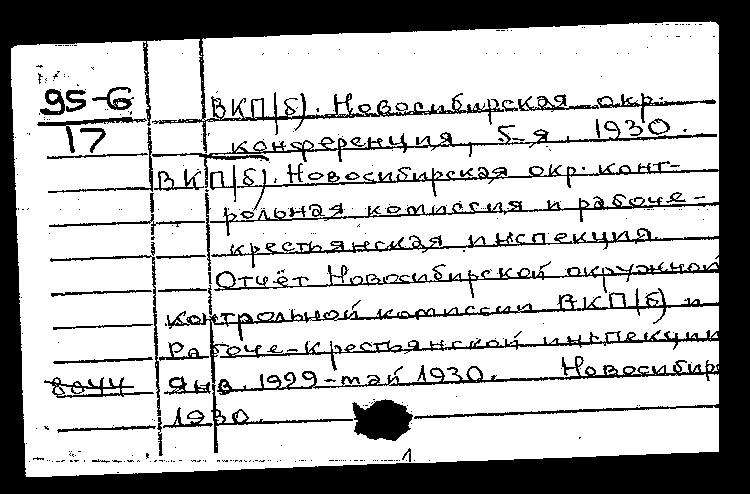 95-6
17
ВКП(б). Новосибирская окр.
конференция, 5-я, 1930.
ВКП(б). Новосибирская окр. конт-
рольная комиссия и рабоче-
крестьянская инспекция.
Отчёт Новосибирской окружной
контрольной комиссии ВКП(б) и
Рабоче-крестьянской инспекции
8044 Янв. 1929-май 1930. Новосибир
1930.
1